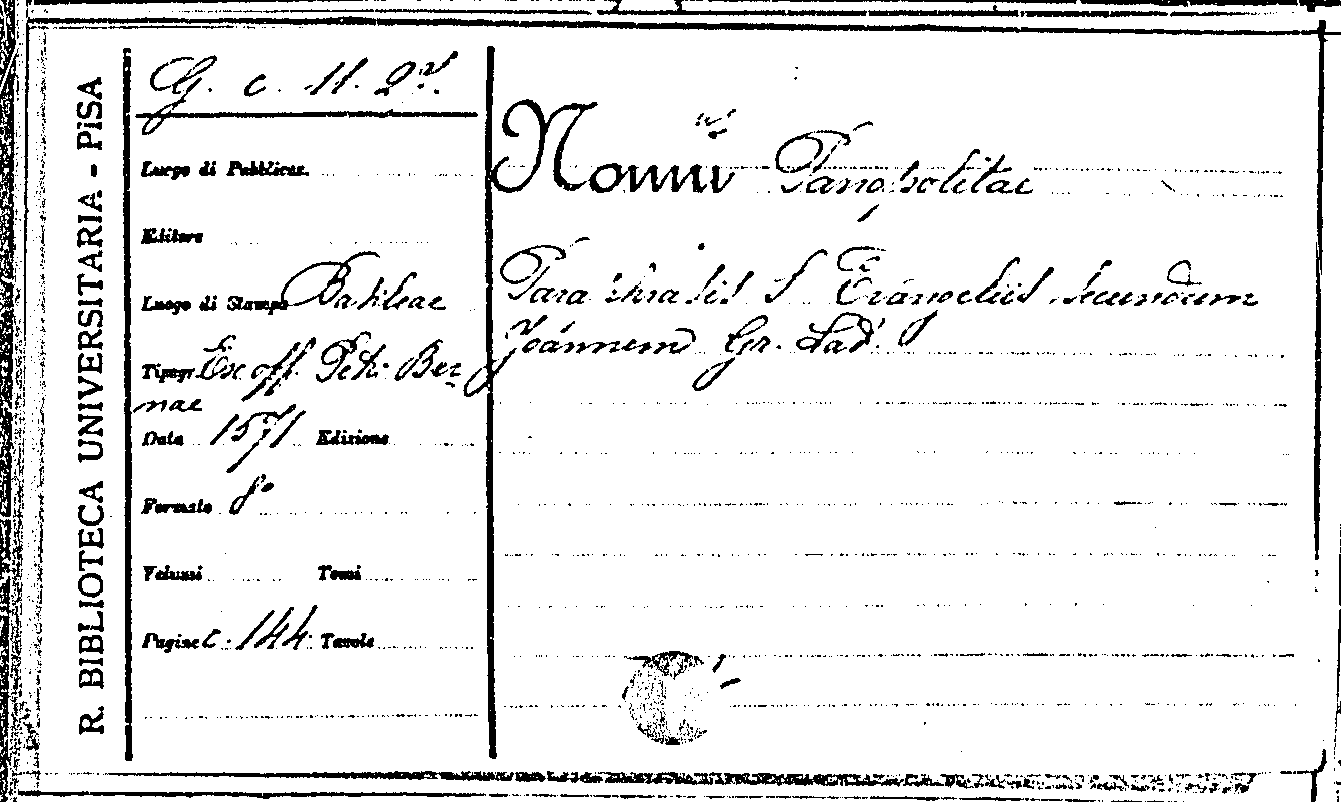 R. BIBLIOTECA UNIVERSITARIA - PISA
G. c. 11. 27.
Luogo di Pubblicaz.
Editore
Luogo di Stampa Basileae
Tipogr. Ex off. Petri Ber=
nae
Data 1571 Edizione
Formato 8°
Volumi Tomi
Pagine c. 144 Tavole
Nonni Panopolitae
Paraphrasis S. Evangelii secundum
Joannem Gr. Lat.